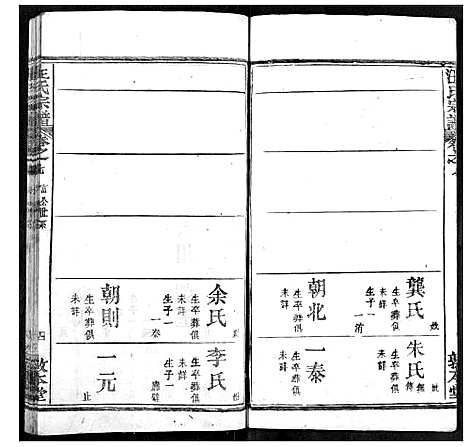 汪氏宗譜
龔氏
生卒葬俱
未詳
生子一
朱氏
生卒葬俱
未詳
朝北
生卒葬俱
未詳
一泰
生卒葬俱
未詳
敦本堂
余氏
生卒葬俱
未詳
生子一
一泰
李氏
生卒葬俱
未詳
生子一
朝則
生卒葬俱
未詳
一元
止
汪氏宗譜
四
敦本堂